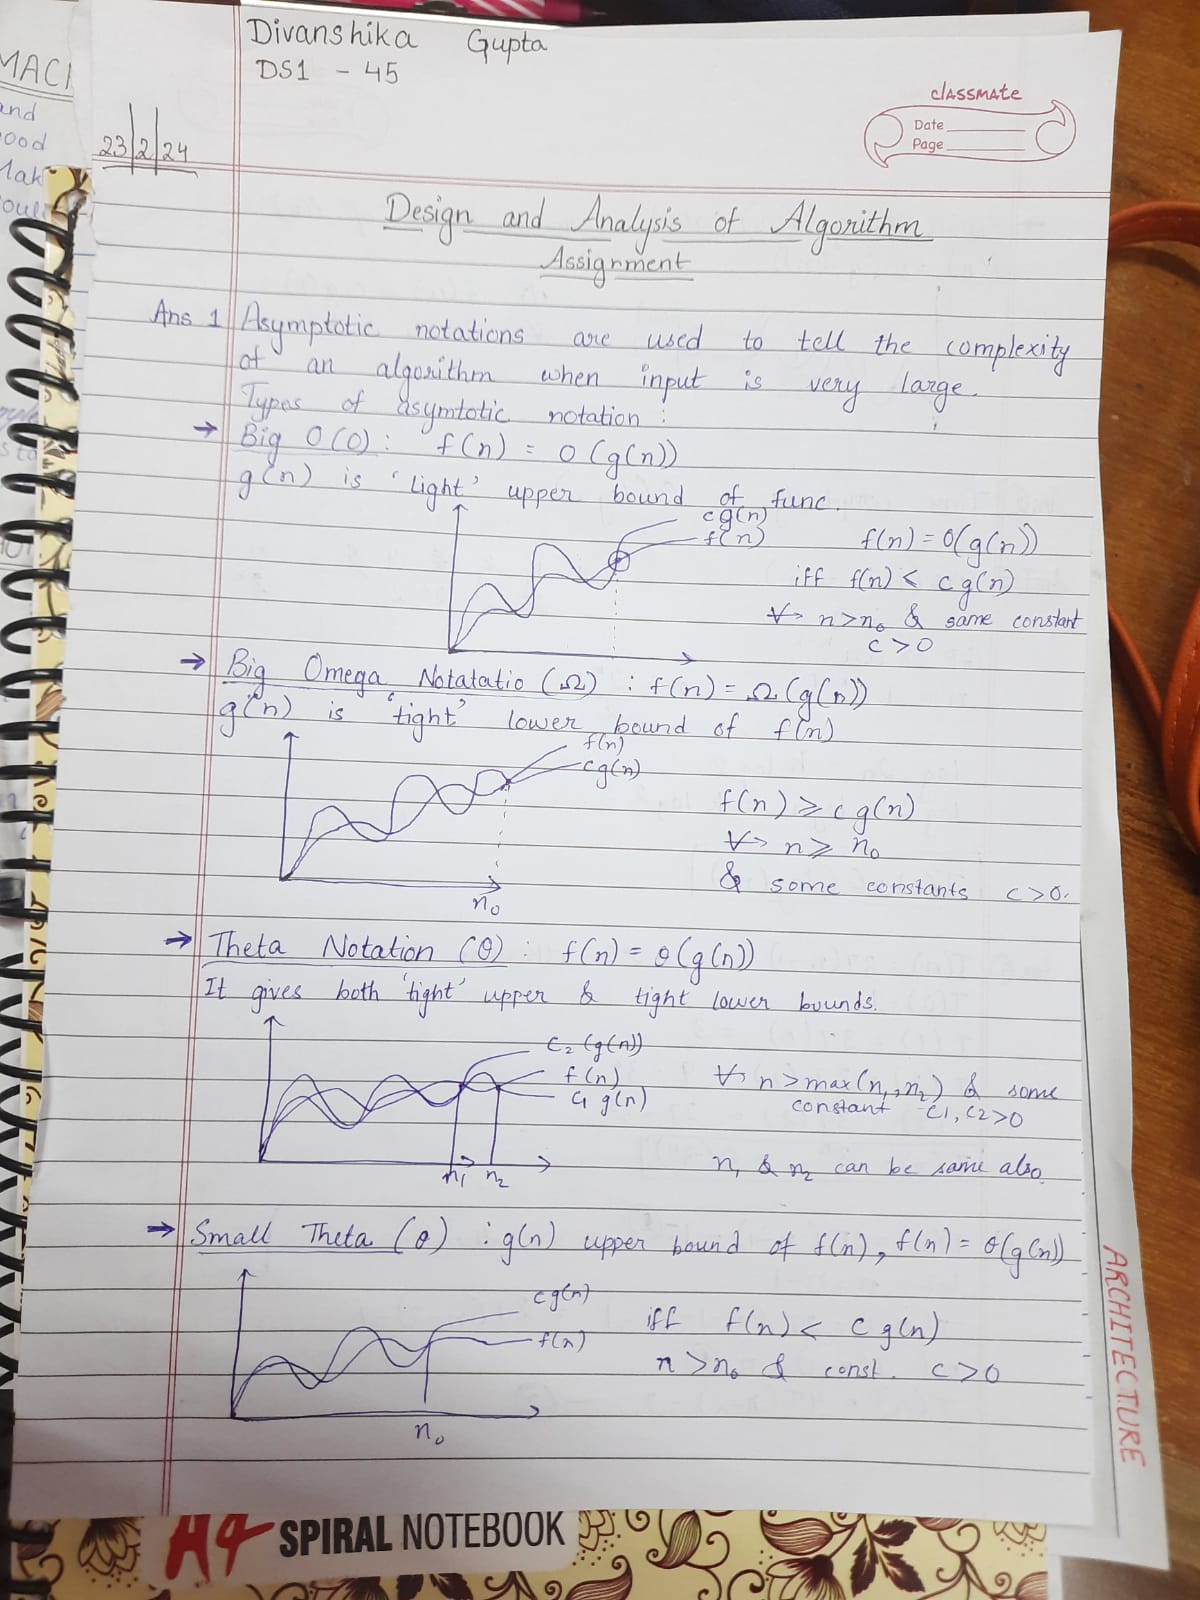 Divanshika Gupta
DS1 - 45
MACH
and
ood
Mak
oul
classmate
Date
Page
23/2/24
Design and Analysis of Algorithm
Assignment
Ans 1 Asymptotic notations are used to tell the complexity
of an algorithm when input is very large.
Types of asymtotic notation :
→ Big O (O) : f(n) = O (g(n))
g(n) is 'tight' upper bound of func.
cg(n)
f(n)
f(n) = O(g(n))
iff f(n) < c g(n)
∀ n > n₀ & same constant
c > 0
→ Big Omega Notatatio (Ω) : f(n) = Ω (g(n))
g(n) is 'tight' lower bound of f(n)
f(n)
cg(n)
f(n) ⩾ c g(n)
∀ n ⩾ n₀
& some constants c > 0.
n₀
→ Theta Notation (θ) : f(n) = θ (g(n))
It gives both 'tight' upper & tight lower bounds.
C₂ (g(n))
f(n)
C₁ g(n)
∀ n > max(n₁, n₂) & some
constant c1, c2 > 0
n₁ n₂
n₁ & n₂ can be same also.
→ Small Theta (θ) : g(n) upper bound of f(n), f(n) = θ(g(n))
cg(n)
f(n)
iff f(n) < c g(n)
n > n₀ & const. c > 0
n₀
ARCHITECTURE
A4 SPIRAL NOTEBOOK